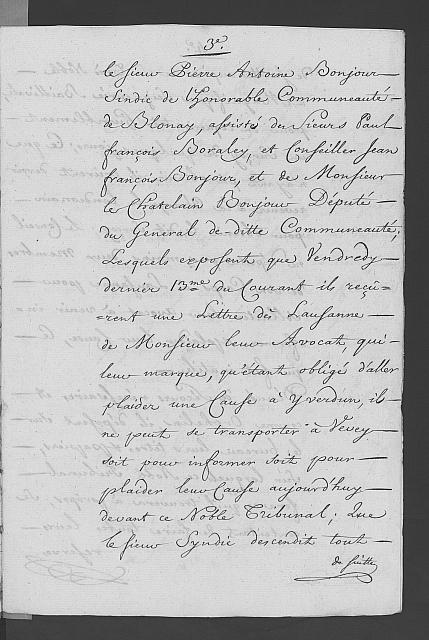 3e.
le sieur Pierre Antoine Bonjour
Sindic de l'honorable Communeauté
de Blonay, assisté des Sieurs Paul
françois Boraley, et Conseiller Jean
françois Bonjour, et de Monsieur
le Chatelain Bonjour Député
du General de-ditte Communeauté;
Lesquels exposent que Vendredy
dernier 13me du Courant ils reçu=
=rent une Lettre dès Lausanne
de Monsieur leur Avocat, qui
leur marque, qu'étant obligé d'aller
plaider une Cause à Yverdun, il
ne peut se transporter à Vevey
soit pour informer soit pour
plaider leur Cause aujourd'huy
devant ce Noble Tribunal; Que
le sieur Syndic descendit tout
de suitte